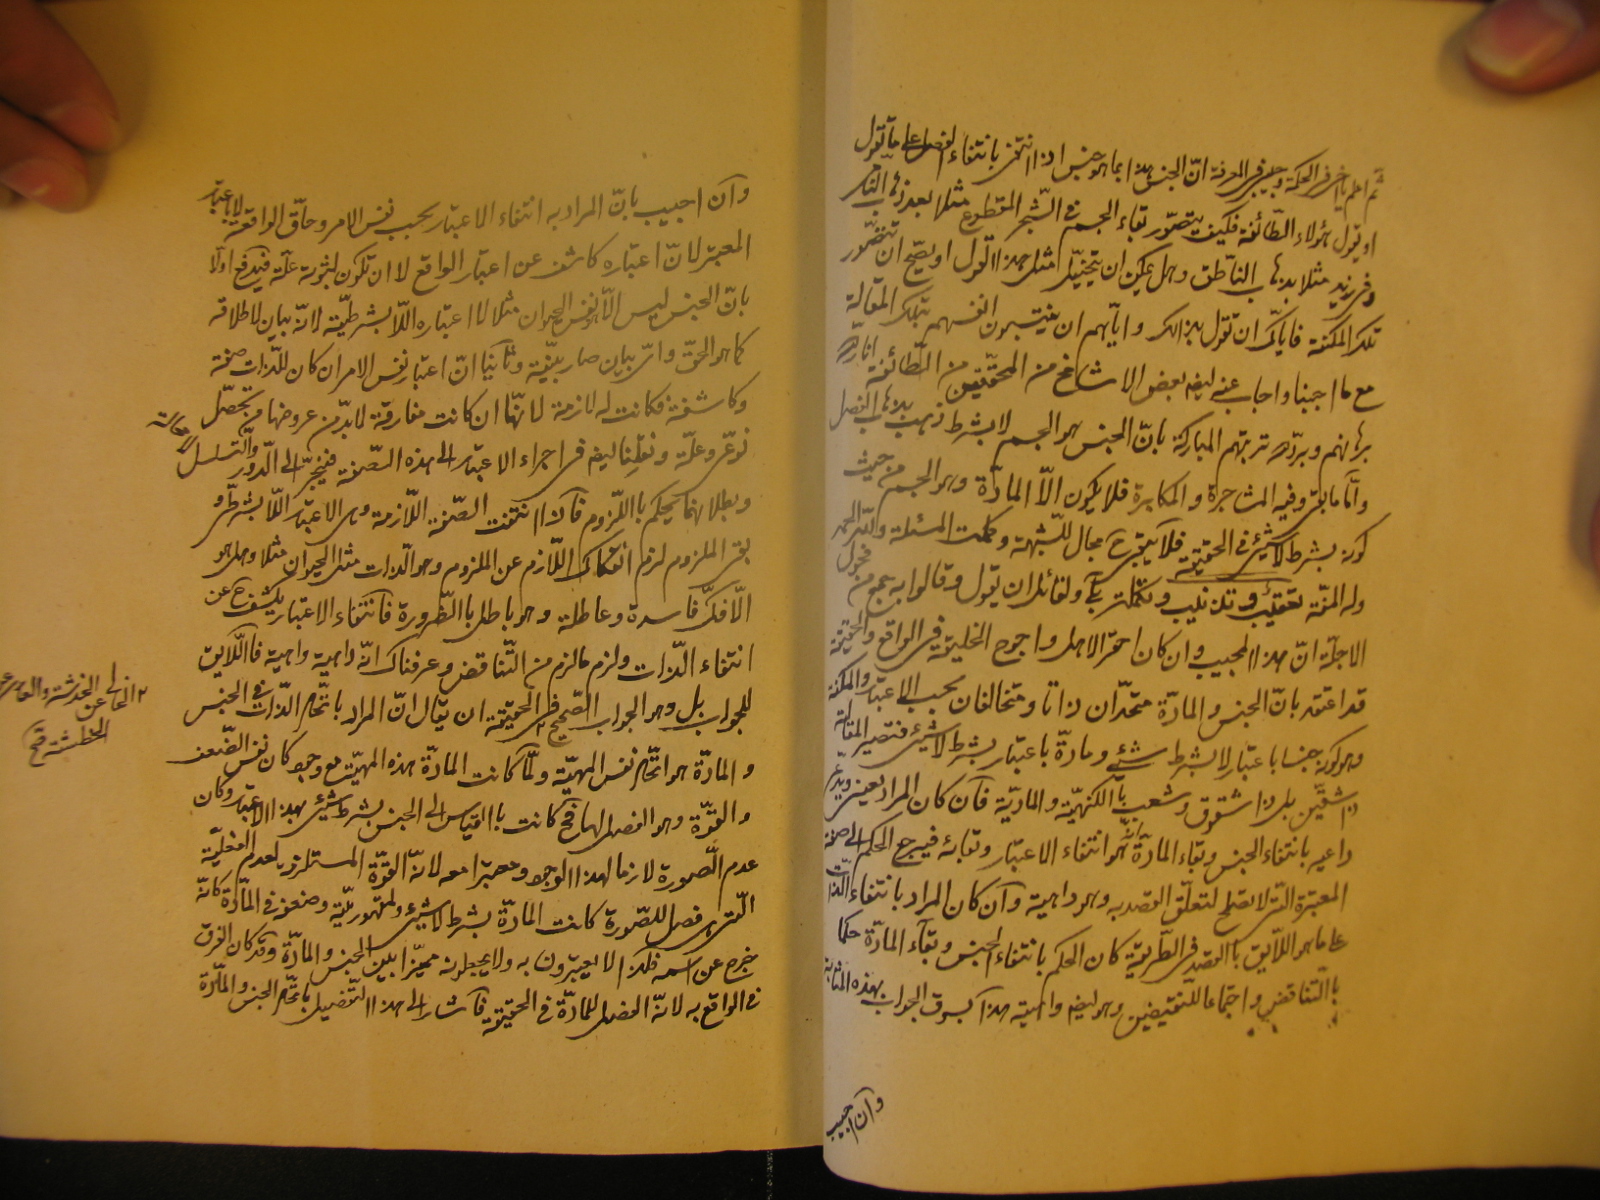 ثم اعلم يا اخى فى الحكمة وحبيبى فى المعرفة انّ الجنس هذا بما هو جنس اذا انتفى بانتفاء الفصل على ما تقول
او يقول هؤلاء الطّائفة فكيف يتصوّر بقاء الجسم فى الشّجر المقطوع مثلا بعد ذهاب النّامى
وفى زيد مثلا بذهاب النّاطق وهل يمكن ان يتخيّل امثل هذا القول او يصحّ ان تتصوّر
تلك المكنة فايّاك ان تقول بذالك وايّاهم ان ينتسبون انفسهم بتلك المقالة
مع ما اجبنا واجاب عنه ايضا بعض الاشامخ من المحقّقين من الطّائفة انار اللّه
برهانهم وبرّد تربتهم المباركة بانّ الجنس هو الجسم لا بشرط ذهب بذهاب الفصل
وامّا ما بقى وفيه المشاجرة والمكابرة فلا يكون الاّ المادّة وهو الجسم من حيث
كونه بشرط لا شيئ فى الحقيقة فلا يبقى مجال للشّبهة وكملت المسئلة وللّه الحمد
وله المنّة تعقيب وتذنيب وتكملة ولقائل ان يقول وقالوا به جمع من فحول
الاجلّة انّ هذا المجيب وان كان احقّ الاهل واحوج الخليقة فى الواقع والحقيقة
قد اعتقد بانّ الجنس والمادّة متّحدان ذاتا ومتخالفان بحسب الاعتبار والمكنة
وهو كونه جنسا باعتبار لا بشرط شيئ ومادّة باعتبار بشرط لا شيئ فتصير المقالة
ذا شقّين بل ذا شقوق وشعب بالكنهيّة والماديّة فان كان المراد يعنى ويدّعى
داعيه بانتفاء الجنس وبقاء المادّة انّه هو انتفاء الاعتبار وبقائه فيرجع الحكم الى صفة
المعتبرة الّتى لا تصلح لتعلّق القصد به وهو داهية وان كان المراد بانتفاء الذّات
على ما هو اللاّيق بالقصد فى الطّريقة كان الحكم بانتفاء الجنس وبقاء المادّة حكما
بالتّناقض واجتماعا للنّقيضين وهو ايضا واهية هذا كسوق الجواب بهذه المثابة
وان اجيب
وان اجيب بانّ المراد به انتفاء الاعتبار بحسب نفس الامر وحاقّ الواقعة لا باعتبار
المعتبر لانّ اعتباره كاشف عن اعتبار الواقع لا ان تكون لثبوته علّة فيدفع اوّلا
بانّ الجنس ليس الاّ نفس الحيوان مثلا لا اعتباره اللاّ بشرطيّة لانّه بيان لاطلاقه
كما هو الحقّ وانّى بيان صار بيّنة وثانيا انّ اعتبار نفس الامر ان كان للذّات صفة
وكاشفة فكانت له لازمة لانّها ان كانت مفارقة لا بدّ من عروضها من تحصّل
نوعى وعلّة ونقلنا ايضا فى اجراء الاعتبار الى هذه الصّفة فينجرّ الى الدّور والتّسلسل
وبطلانهما يحكم باللّزوم فاذا انتفت الصّفة اللاّزمة وهى الاعتبار اللاّ بشرطى و
بقى الملزوم لزم انفكاك اللاّزم عن الملزوم وهو الذّات مثل الحيوان مثلا وهل هو
الاّ فكّ فاسدة وعاطلة وهو باطل بالضّرورة فانتفاء الاعتبار يكشف عن
انتفاء الذّات ولزم ما لزم من التّناقض وعرفناك انّه داهية واهية فاللاّيق
للجواب بل وهو الجواب الصّحيح فى الحقيقة ان يقال انّ المراد باتّحاد الذّات فى الجنس
والمادّة هو اتّحاد نفس المهيّة ولمّا كانت المادّة هذه المهيّة مع وجود كان نفس الضّعف
والقوّة وهو الفصل لها فح كانت بالقياس الى الجنس بشرط شيئ بهذا الاعتبار وكان
عدم الصّورة لازما لهذا الوجود ومعتبرا معه لانّه القوّة المستلزمة لعدم الفعليّة
الّتى هى فصل للصّورة كانت المادّة بشرط لا شيئ ولمقهوريّته وضعفه فى المادّة كانّه
خرج عن اسمه فلهذا لا يعبّرون به ولا يجعلونه مميّزا بين الجنس والمادّة وقد كان الفرق
فى الواقع به لانّه الفصل للمادّة فى الحقيقة فاشار الى هذا التّفصيل باتّحاد الجنس والمادّة
الخالى عن الخدشة